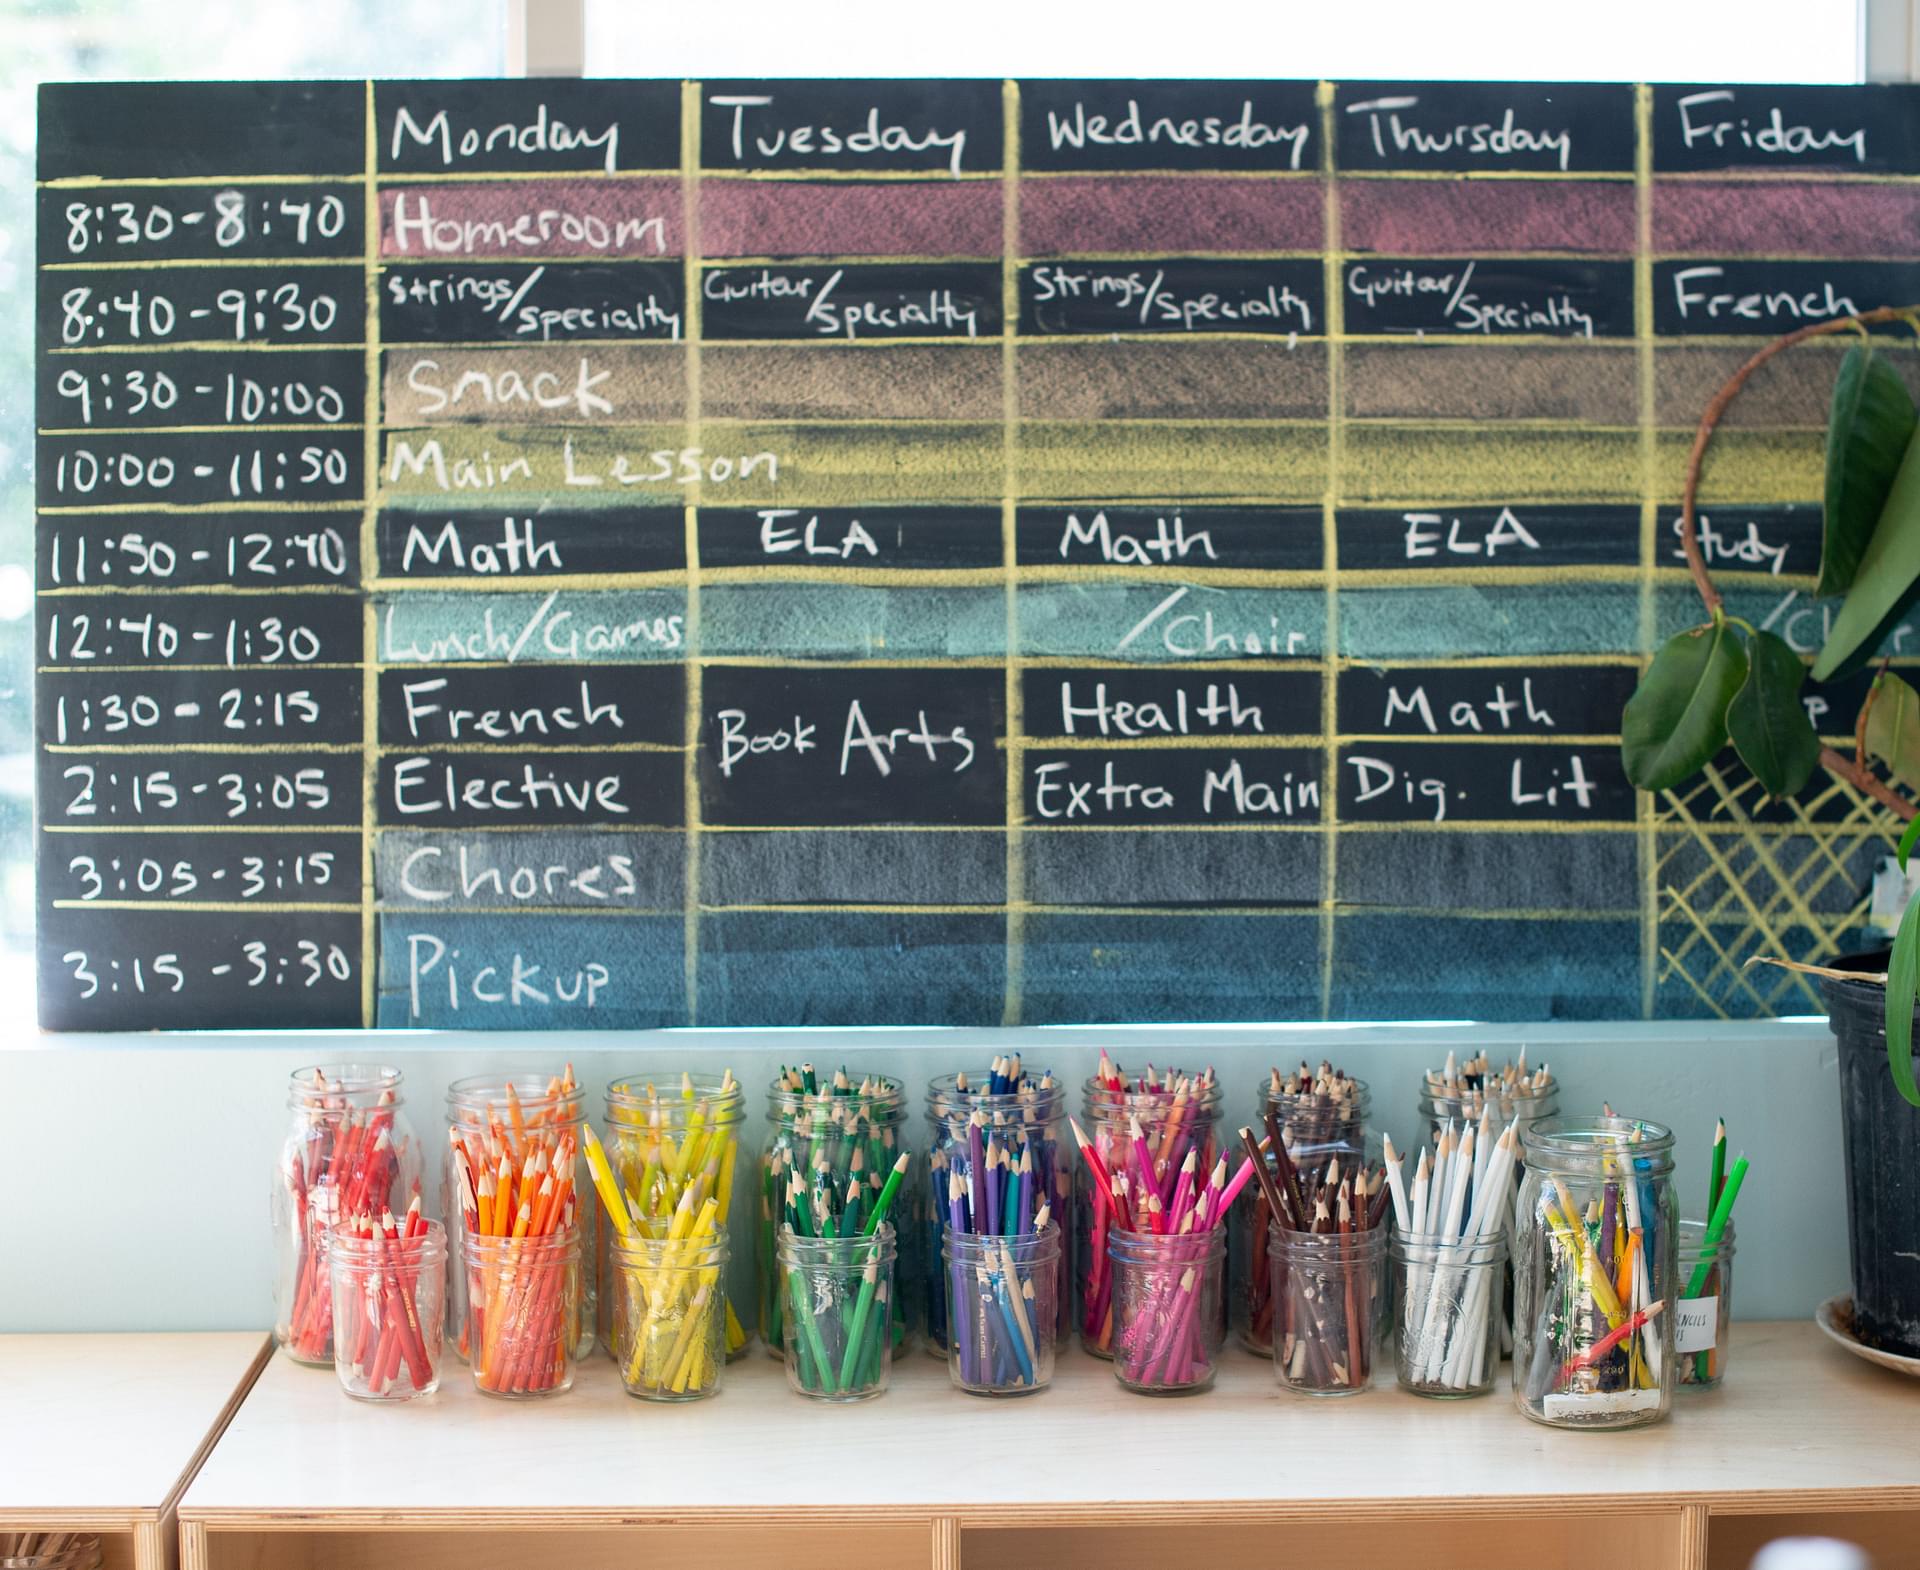 Monday Tuesday Wednesday Thursday Friday
8:30-8:40 Homeroom
8:40-9:30 Strings/Specialty Guitar/Specialty Strings/Specialty Guitar/Specialty French
9:30-10:00 Snack
10:00-11:50 Main Lesson
11:50-12:40 Math ELA Math ELA Study
12:40-1:30 Lunch/Games /Choir
1:30-2:15 French Book Arts Health Math
2:15-3:05 Elective Extra Main Dig. Lit
3:05-3:15 Chores
3:15-3:30 Pickup